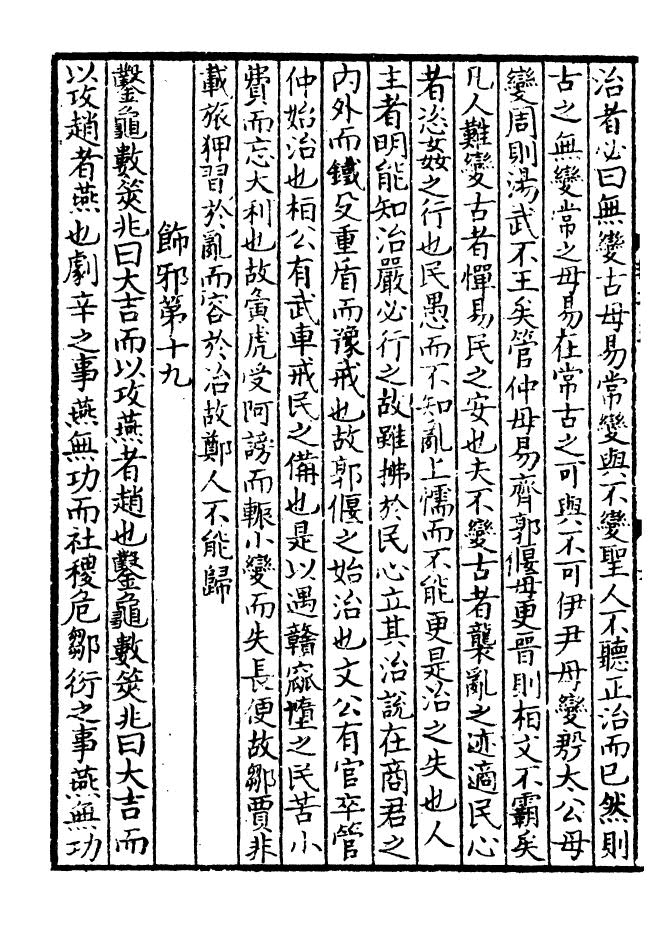 治者必曰無變古毋易常變與不變聖人不聽正治而已然則
古之無變常之毋易在常古之可與不可伊尹毋變殷太公毋
變周則湯武不王矣管仲毋易齊郭偃毋更晋則桓文不霸矣
凡人難變古者憚易民之安也夫不變古者襲亂之迹適民心
者恣姦之行也民愚而不知亂上懦而不能更是治之失也人
主者明能知治嚴必行之故雖拂於民心立其治說在商君之
内外而鐵殳重盾而豫戒也故郭偃之始治也文公有官卒管
仲始治也桓公有武車戒民之備也是以遇贛窳墮之民苦小
費而忘大利也故夤虎受阿謗而𨌑小變而失長便故鄒賈非
載旅狎習於亂而容於治故鄭人不能歸
飾邪第十九
鑿龜數筴兆曰大吉而以攻燕者趙也鑿龜數筴兆曰大吉而
以攻趙者燕也劇辛之事燕無功而社稷危鄒衍之事燕無功